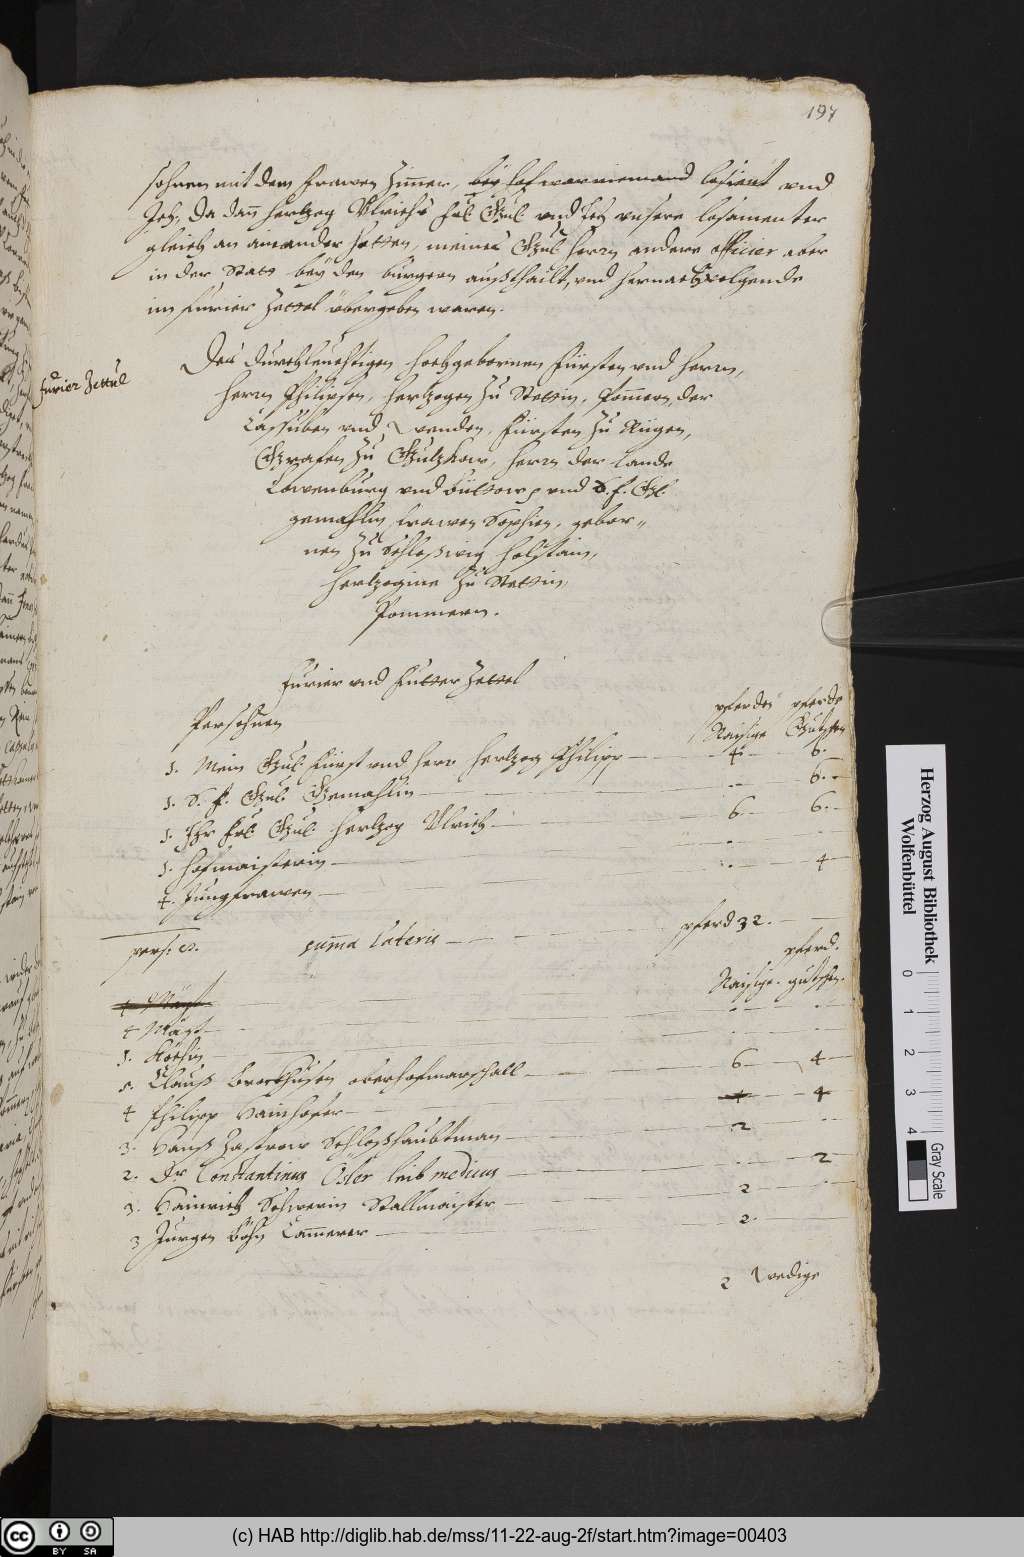 197
sohnen mit dem Frawen Zimer, bey hof war niemand losiert und
Ich, da dan hertzog Ulrichs frl. Gnl. und Ich unsere losamenter
gleich an ainander hetten, meines Gnl. herrn andere officier aber
in der Statt bey den burgern außthailt, und hernach volgende
im furier Zettel übergeben waren.
furier Zettul
Des durchleuchtigen hochgebornen Fürsten und herrn,
herrn Philipsen, hertzogen Zu Stettin, Pomern, der
Cassuben und Wenden, Fürsten Zu Rügen,
Grafen Zu Gutzkow, herrn der Lande
Lowenburg und Bütow und S. f. Gl.
gemahlin frawen Sophien, gebor-
nen Zu Schleßwig holstain,
hertzogine Zu Stettin,
Pommern.
Furier und Futter Zettel
Persohnen
pferdes pferde
Raisige Gutschen
1. Mein Gnl. Fürst und herr hertzog Philipp 4 6.
1. S. F. Gnl. Gemahlin 6.
1. Ihr frl. Gnl. hertzog Ulrich 6 6.
1. hofmaisterin
4. Jungfrawen 4
pers. suma lateris pferd 32.
pferd.
Raisige. gutschen.
4 Mägt
4 Mägt
1. Köchin
5. Clauß Brockhusen oberhofmarschall 6 4
4 Philipp Hainhofer 4 4
3. Hanß Zastrow Schloßhaubtman 2
2. Dr. Constantinus Osler leib medicus 2
3. Hainrich Schwerin Stallmaister 2
3 Jurgen Bohn Camerer 2.
2 Wedige
Herzog August Bibliothek
Wolfenbüttel
0 1 2 3 4
Gray Scale
cc BY SA
(c) HAB http://diglib.hab.de/mss/11-22-aug-2f/start.htm?image=00403